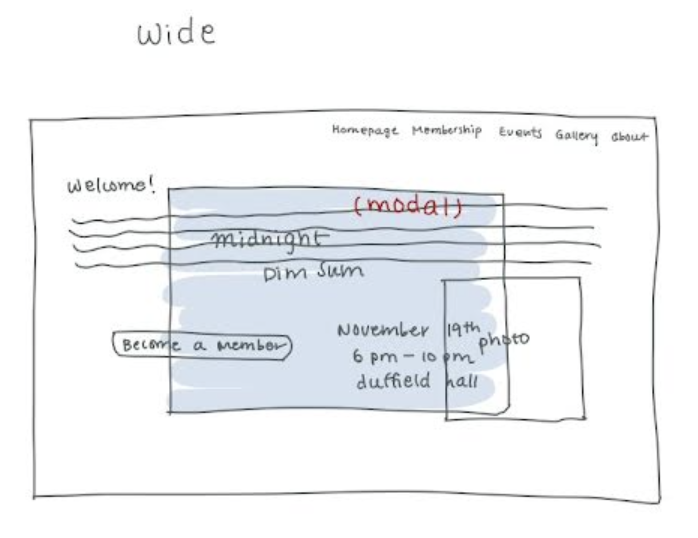 wide
Homepage Membership Events Gallery about
Welcome!
(modal)
midnight
Dim Sum
Become a member
November 19th
6 pm - 10 pm
duffield hall
photo